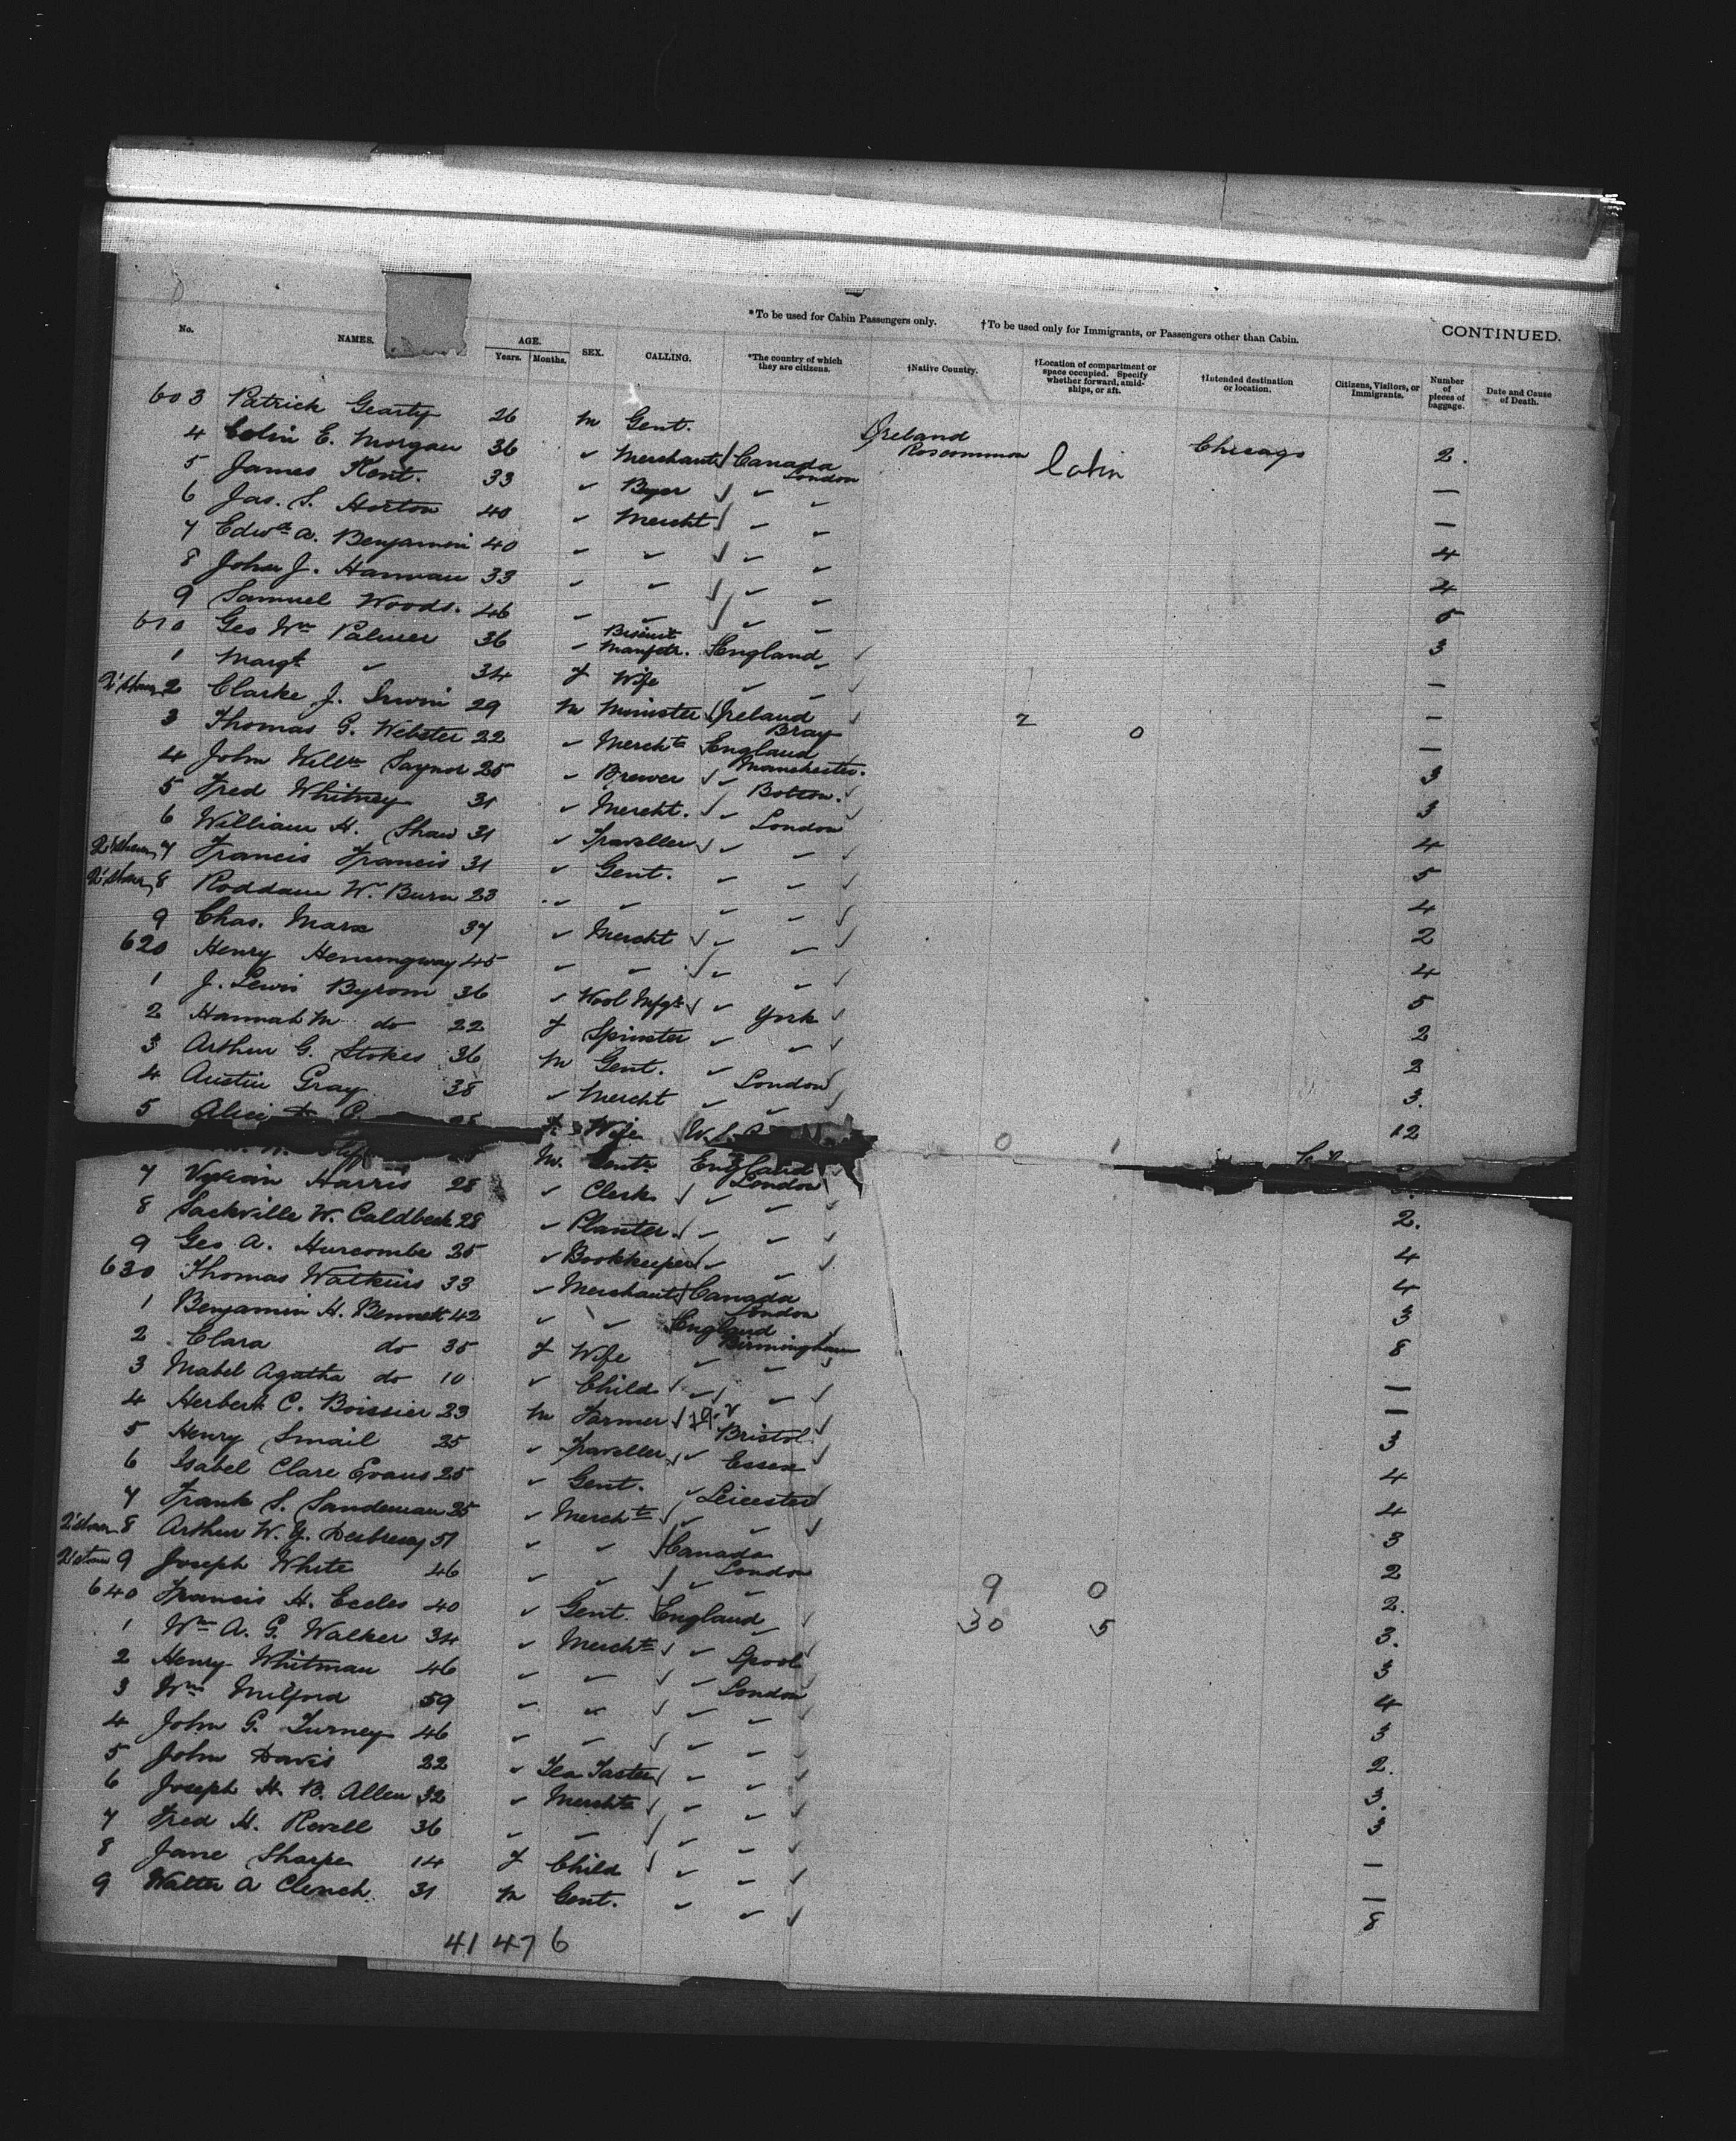 *To be used for Cabin Passengers only. †To be used only for Immigrants, or Passengers other than Cabin. CONTINUED.
No. NAMES. AGE. Years. Months. SEX. CALLING. *The country of which they are citizens. †Native Country. †Location of compartment or space occupied. Specify whether forward, amidships, or aft. †Intended destination or location. Citizens, Visitors, or Immigrants. Number of pieces of baggage. Date and Cause of Death.
603 Patrick Gearty 26 m Gent. Ireland Roscommon Cabin Chicago 2.
4 Colin E. Morgan 36 " Merchant Canada London —
5 James Kent. 33 " Buyer " " —
6 Jas. S. Horton 40 " Mercht " " 4
7 Edwd A. Benjamin 40 " " " " 4
8 John J. Hannan 33 " " " " 5
9 Samuel Woods. 46 " " " " 3
610 Geo Wm Palmer 36 " Biscuit Manfctr. England " —
1 Margt. " 34 f Wife " " —
2 Clarke J. Irwin 29 m Minister Ireland Bray 2 0 —
3 Thomas G. Webster 22 " Mercht England Manchester. 3
4 John Willm Saynor 25 " Brewer " Bolton. 3
5 Fred Whitney 31 " Mercht. " London 4
6 William H. Shaw 31 " Traveller " " 5
7 Francis Francis 31 " Gent. " " 4
8 Roddam W. Burn 23 " " " " 2
9 Chas. Marx 37 " Mercht " " 4
620 Henry Hemingway 45 " " " " 5
1 J. Lewis Byrom 36 " Wool Mfgr " York 2
2 Hannah M do 22 f Spinster " " 2
3 Arthur G. Stokes 36 m Gent. " London 3.
4 Austin Gray 38 " Mercht " " 12
5 Alice f Wife 0 1
m. Gent. England London
7 Vyvian Harris 28 " Clerk " " 2.
8 Sackville W. Caldbeck 28 " Planter. " " 4
9 Geo A. Hurcombe 25 " Bookkeeper " " 4
630 Thomas Watkins 33 " Merchant Canada London 3
1 Benjamin H. Bennett 42 " " England Birmingham 8
2 Clara do 35 f Wife " " —
3 Mabel Agatha do 10 " Child " " —
4 Herbert C. Boissier 23 m Farmer Bristol 3
5 Henry Smail 25 " Traveller " Essex 4
6 Isabel Clare Evans 25 " Gent. " Leicester 4
7 Frank S. Sandeman 25 " Mercht " " 3
8 Arthur W. Y. 51 " " Canada London 2
9 Joseph White 46 " " " " 9 0 2.
640 Francis H. Eccles 40 " Gent. England " 30 5 3.
1 Wm A. G. Walker 34 " Mercht " Lpool 3
2 Henry Whitman 46 " " " London 4
3 Wm Milford 59 " " " " 3
4 John G. Turney 46 " " " " 2.
5 John Davis 22 " Tea Taster " " 3.
6 Joseph H. B. Allen 32 " Mercht " " 3
7 Fred H. Revell 36 " " " " —
8 Jane Sharpe 14 f Child " " —
9 Walter A Clench. 31 m Gent. " " 8
41476